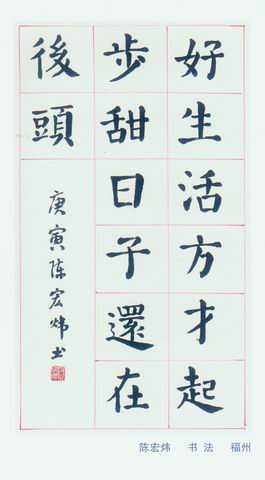 好生活方才起
步甜日子還在
後頭
庚寅陈宏炜书
陈宏炜 书法 福州